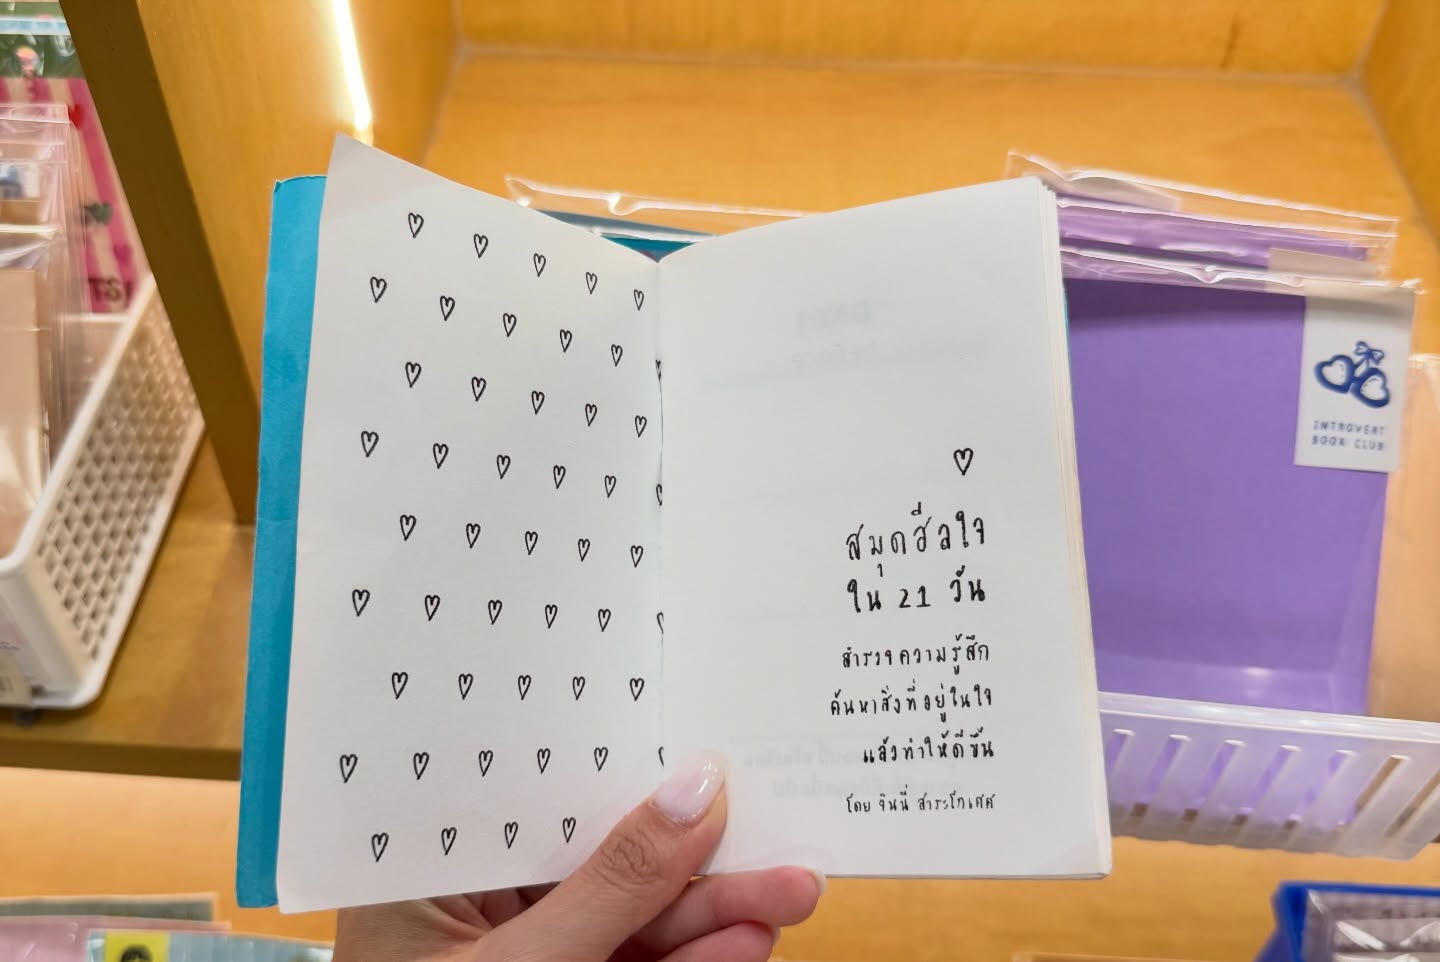 สมุดฮีลใจ
ใน 21 วัน
สำรวจความรู้สึก
ค้นหาสิ่งที่อยู่ในใจ
แล้วทำให้ดีขึ้น
โดย จินนี่ สาระโกเศศ
INTROVERT
BOOK CLUB